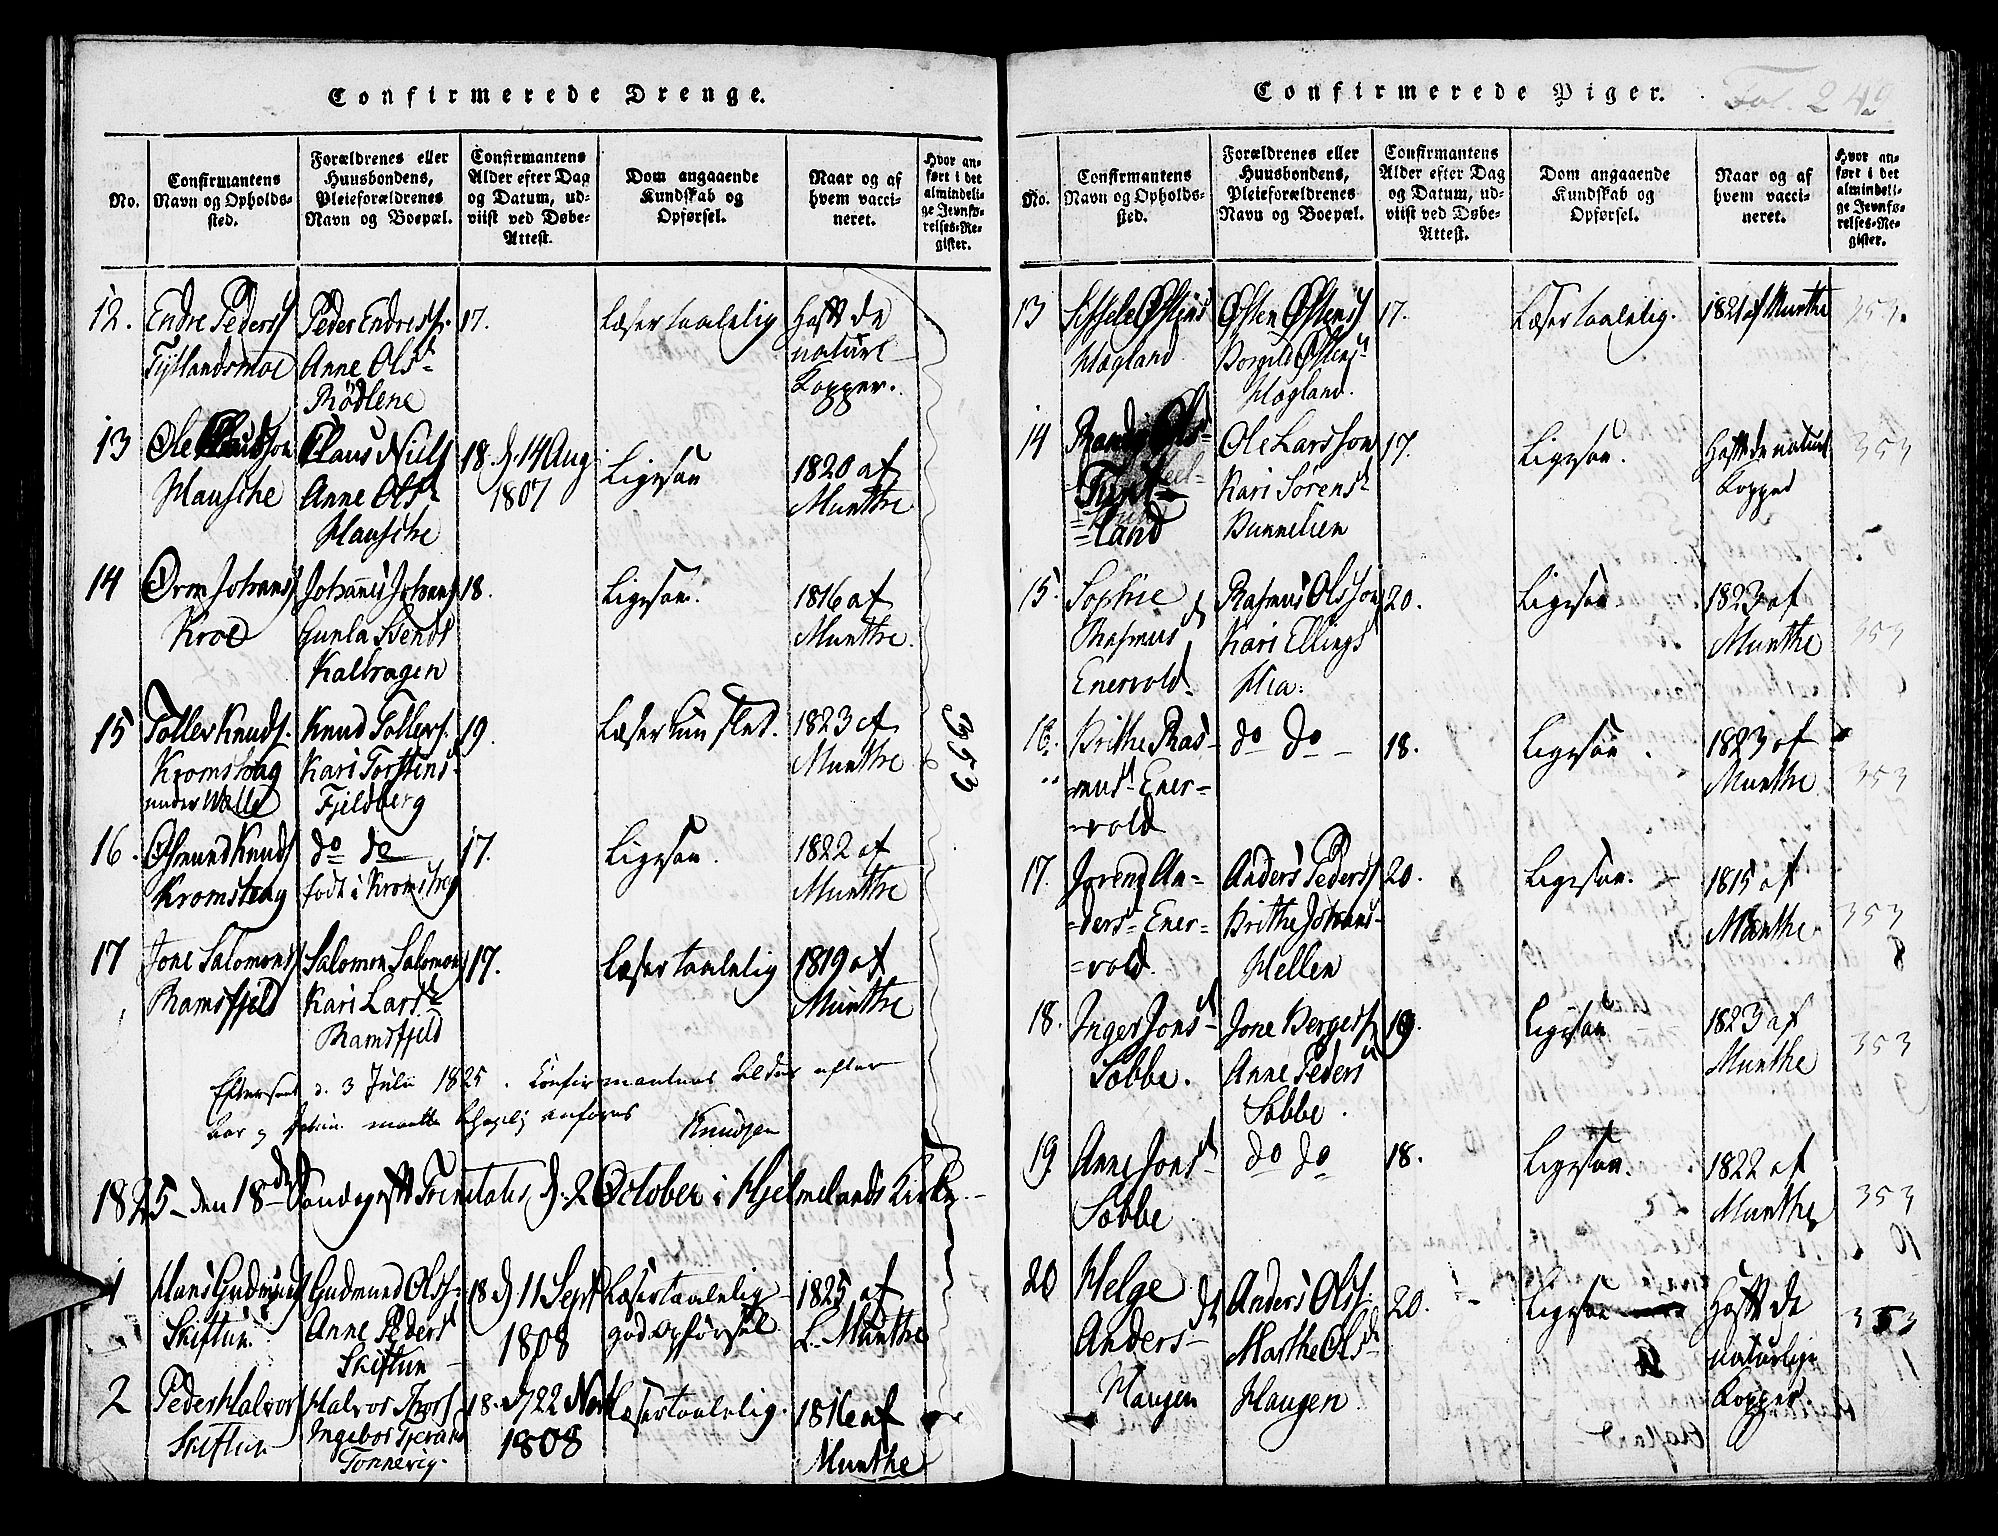 Confirmerede Drenge.
No.
Confirmantens
Navn og Opholds-
sted.
Forældrenes eller
Huusbondens,
Pleieforældrenes
Navn og Boepæl.
Confirmantens
Alder efter Dag
og Datum, ud-
viist ved Døbe-
Attest.
Dom angaaende
Kundskab og
Opførsel.
Naar og af
hvem vacci-
neret.
Hvor an-
ført i det
almindeli-
ge Jevnfø-
relses-Re-
gister.
12.
Endre Peders
Peder Endress.
Anne Ols
17.
Læser taalelig
Havt de
naturl
Kopper.
13
Ole
Hausche
Claus Niels
Anne Ols
Hausche
18. d. 14 Aug
1807
Ligesaa
1820 af
Munthe
14
Orm Johans
Kroe
Johannes Johans
Gunla Svends
Kalhagen
18.
Ligesaa.
1816 af
Munthe.
15
Toller Knuds.
under Walle
Knud Tollers.
Kari Torstens
Fjeldberg
19.
Læser kun slet.
1823 af
Munthe
353
16.
Osmund Knuds
do do
født i
17.
Ligesaa.
1822 af
Munthe
17
Jone Salomons
Ramsfjeld
Salomon Salomons
Kari Lars
Ramsfjeld
17.
Læser taalelig
1819 af
Munthe
Efterseet d. 3 Julii 1825. Confirmantens Alder efter
Aar og Datum maatte anføres
Knudsen
1825 den 18de Søndag eft Trinitatis, d. 2 October i Hjelmelands Kirke.
1
Hans Gudmunds
Skiftun
Gudmund Ols
Anne Peders
Skiftun
18 d 11 Sept
1808
Læser taalelig
god Opførsel
1825 af
L. Munthe
2
Peder Halvors
Skiftun
Halvor Thors
Tonnevig.
18. d 22 Nov
1808
Læser taalelig.
1816 af
Munthe
Confirmerede Piger.
Fol. 249
No.
Confirmantens
Navn og Opholds-
sted.
Forældrenes eller
Huusbondens,
Pleieforældrenes
Navn og Boepæl.
Confirmantens
Alder efter Dag
og Datum, ud-
viist ved Døbe-
Attest.
Dom angaaende
Kundskab og
Opførsel.
Naar og af
hvem vacci-
neret.
Hvor an-
ført i det
almindeli-
ge Jevnfø-
relses-Re-
gister.
13
Hagland
Østen Østens
Hagland.
17.
Læser taalelig.
1821 af Munthe
353.
14
land
Ole Larsson
Kari Sørens
17.
Ligesaa.
Havt de naturl
Kopper
353
15.
Sophie
Rasmus
Enervold
Rasmus Olsson
Kari Ellings
Hia.
20.
Ligesaa
1823 af
Munthe
353
16.
Brithe Ras-
mus Ener-
vold
do do
18.
Ligesaa.
1823 af
Munthe
353
17.
An-
ders Ener-
vold.
Anders Peders
Brithe Johans
Hellen
20.
Ligesaa.
1815 af
Munthe
353
18.
Inger Jons
Sobbe.
Jone Bergess
Anne Peders
Sobbe.
19
Ligesaa
1823 af
Munthe
353
19
Anne Jons
Sobbe
do do
18.
Ligesaa.
1822 af
Munthe
353
20
Helge
Anders
Haugen
Anders Ols.
Marthe Ols
Haugen
20.
Ligesaa
Havt de
naturlige
Kopper
353